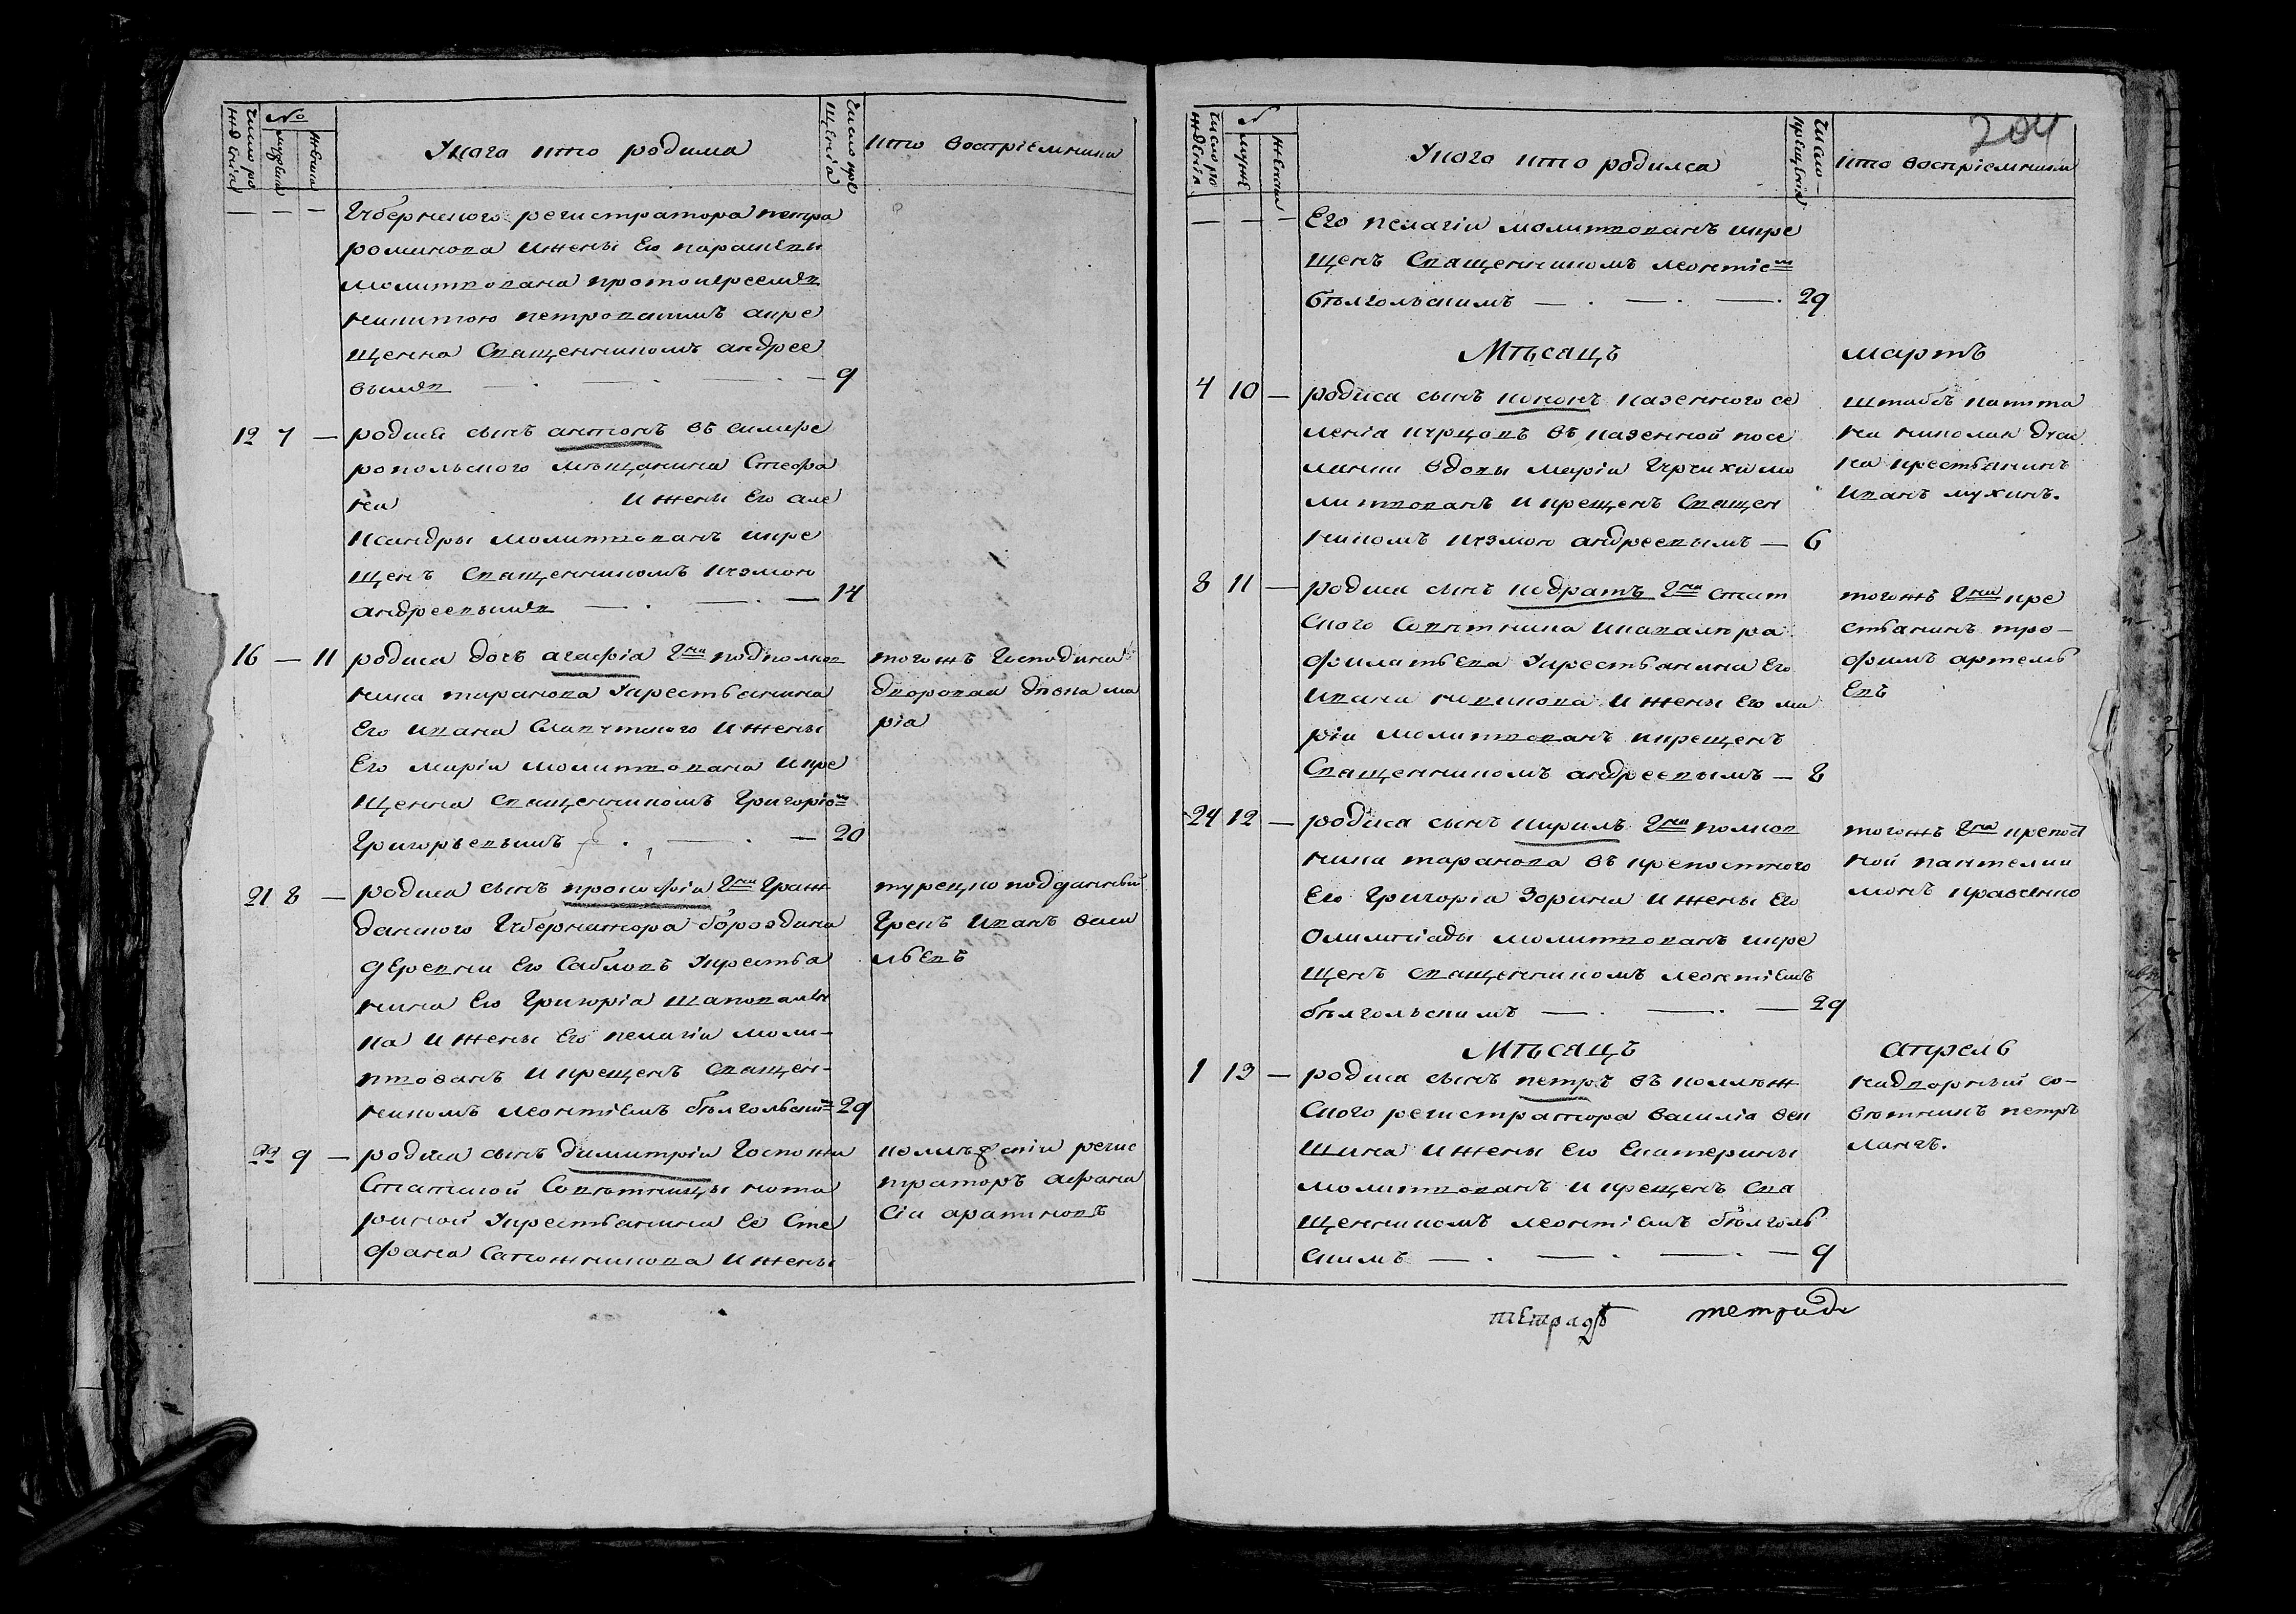 число рождения
№
мужеска
женска
У кого кто родился
число крещения
кто восприемники
— — —
Губернскаго регистратора петра
романова и жены Его параскевы
молитвована протоиереемъ
никитою петровскимъ а кре
щенна Священникомъ андрее
вымъ — 9
12 7 — родился сынъ антонъ въ симфе
ропольского мещанина Стефа
на и жены Его але
ксандры молитвованъ и кре
щенъ Священникомъ кузмою
андреевымъ — 14
16 — 11 родися дочъ агафія Гна подполков
ника таранова Укрестьянина
Его ивана и жены
Его маріи молитвована и кре
щенна священникомъ Григоріемъ
Григорьевымъ — 20
тогожъ Господина
дворовая
ма
рія
21 8 — родися сынъ прокофіи Гна Граж
данского Губернатора бороздина
деревни Его Сабловъ Укрестья
нина Его Григорія шаповален
ка и жены Его пелагіи моли-
твованъ и крещенъ священ-
никомъ леонтіемъ бѣлгольским 29
турецко подданный
Грекъ иванъ васи
льевъ
9 — родися сынъ димитріи Госпожи
Статской Советницы нота
риной Укрестьянина Её Сте
фана Сапожникова и жены
колижскіи регис
траторъ афана
сіи
204
число рождения
№
муже
женска
У кого кто родился
число крещения
кто восприемники
— — —
Его пелагіи молитвованъ и кре
щенъ Священникомъ леонтіем
бѣлгольскимъ — 29
Мѣсяцъ мартъ
4 10 — родися сынъ кононъ казенного се
ленія курцовъ въ казенной посе
лянки вдовы маріи мо
литвованъ и крещенъ Священ
никомъ кузмою андреевымъ — 6
штабсъ капита
на николая
на крестьянинъ
иванъ мухинъ.
8 11 — родися сынъ кодратъ Гна стат
ского Советника и кавалера
филатьева Укрестьянина Его
ивана новикова и жены Его ма
ріи молитвованъ и крещенъ
Священникомъ андреевымъ — 8
тогожъ Гна кре
стьянинъ тро-
фимъ артемь
евъ
24 12 — родися сынъ кирилъ Гна полков
ника таранова въ крепостного
Его Григорія Зорина и жены Его
Олимпіады молитвованъ и кре
щенъ священникомъ леонтіемъ
бѣлгольскимъ — 29
тогожъ Гна крепост
ной пантелии
монъ кравченко
Мѣсяцъ апрель
1 13 — родися сынъ петръ въ коллеж
ского регистратора василіа вен
шина и жены Его Екатерины
молитвованъ и крещенъ Свя
щенникомъ леонтіемъ бѣлголь
скимъ — 9
надворный со-
ветникъ петръ
лангъ.
тетрадь тетради